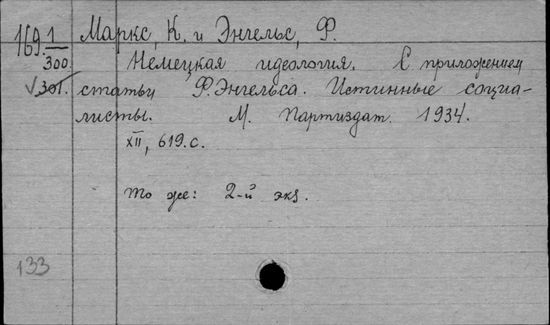 169 1/300. Маркс, К. и Энгельс, Ф.
Немецкая идеология. С приложением
√ 301. статьи Ф. Энгельса. Истинные социа-
листы. М. Партиздат. 1934.
XII, 619.с.
То же: 2-й экз.
133